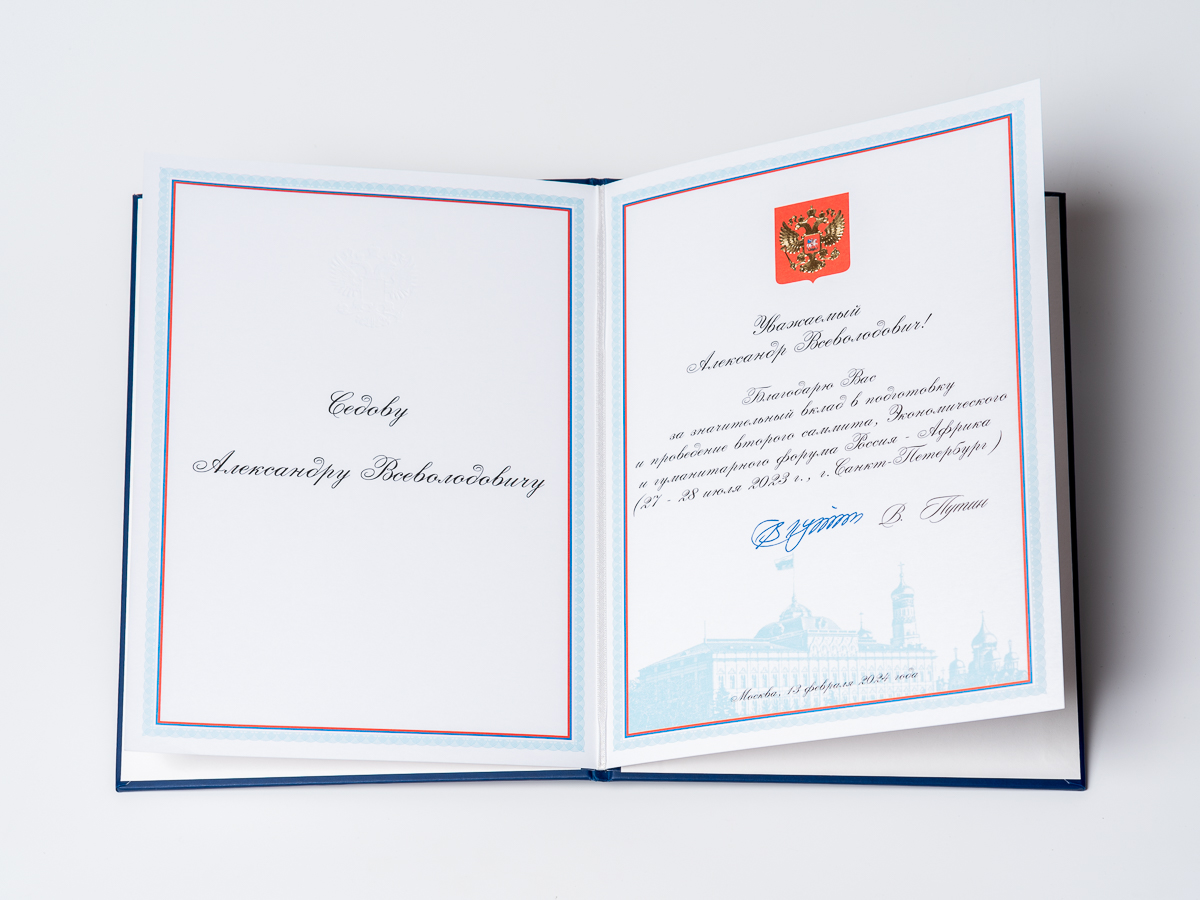 Седову
Александру Всеволодовичу
Уважаемый
Александр Всеволодович!
Благодарю Вас
за значительный вклад в подготовку
и проведение второго саммита, Экономического
и гуманитарного форума Россия - Африка
(27 - 28 июля 2023 г., г. Санкт-Петербург)
В. Путин
Москва, 13 февраля 2024 года